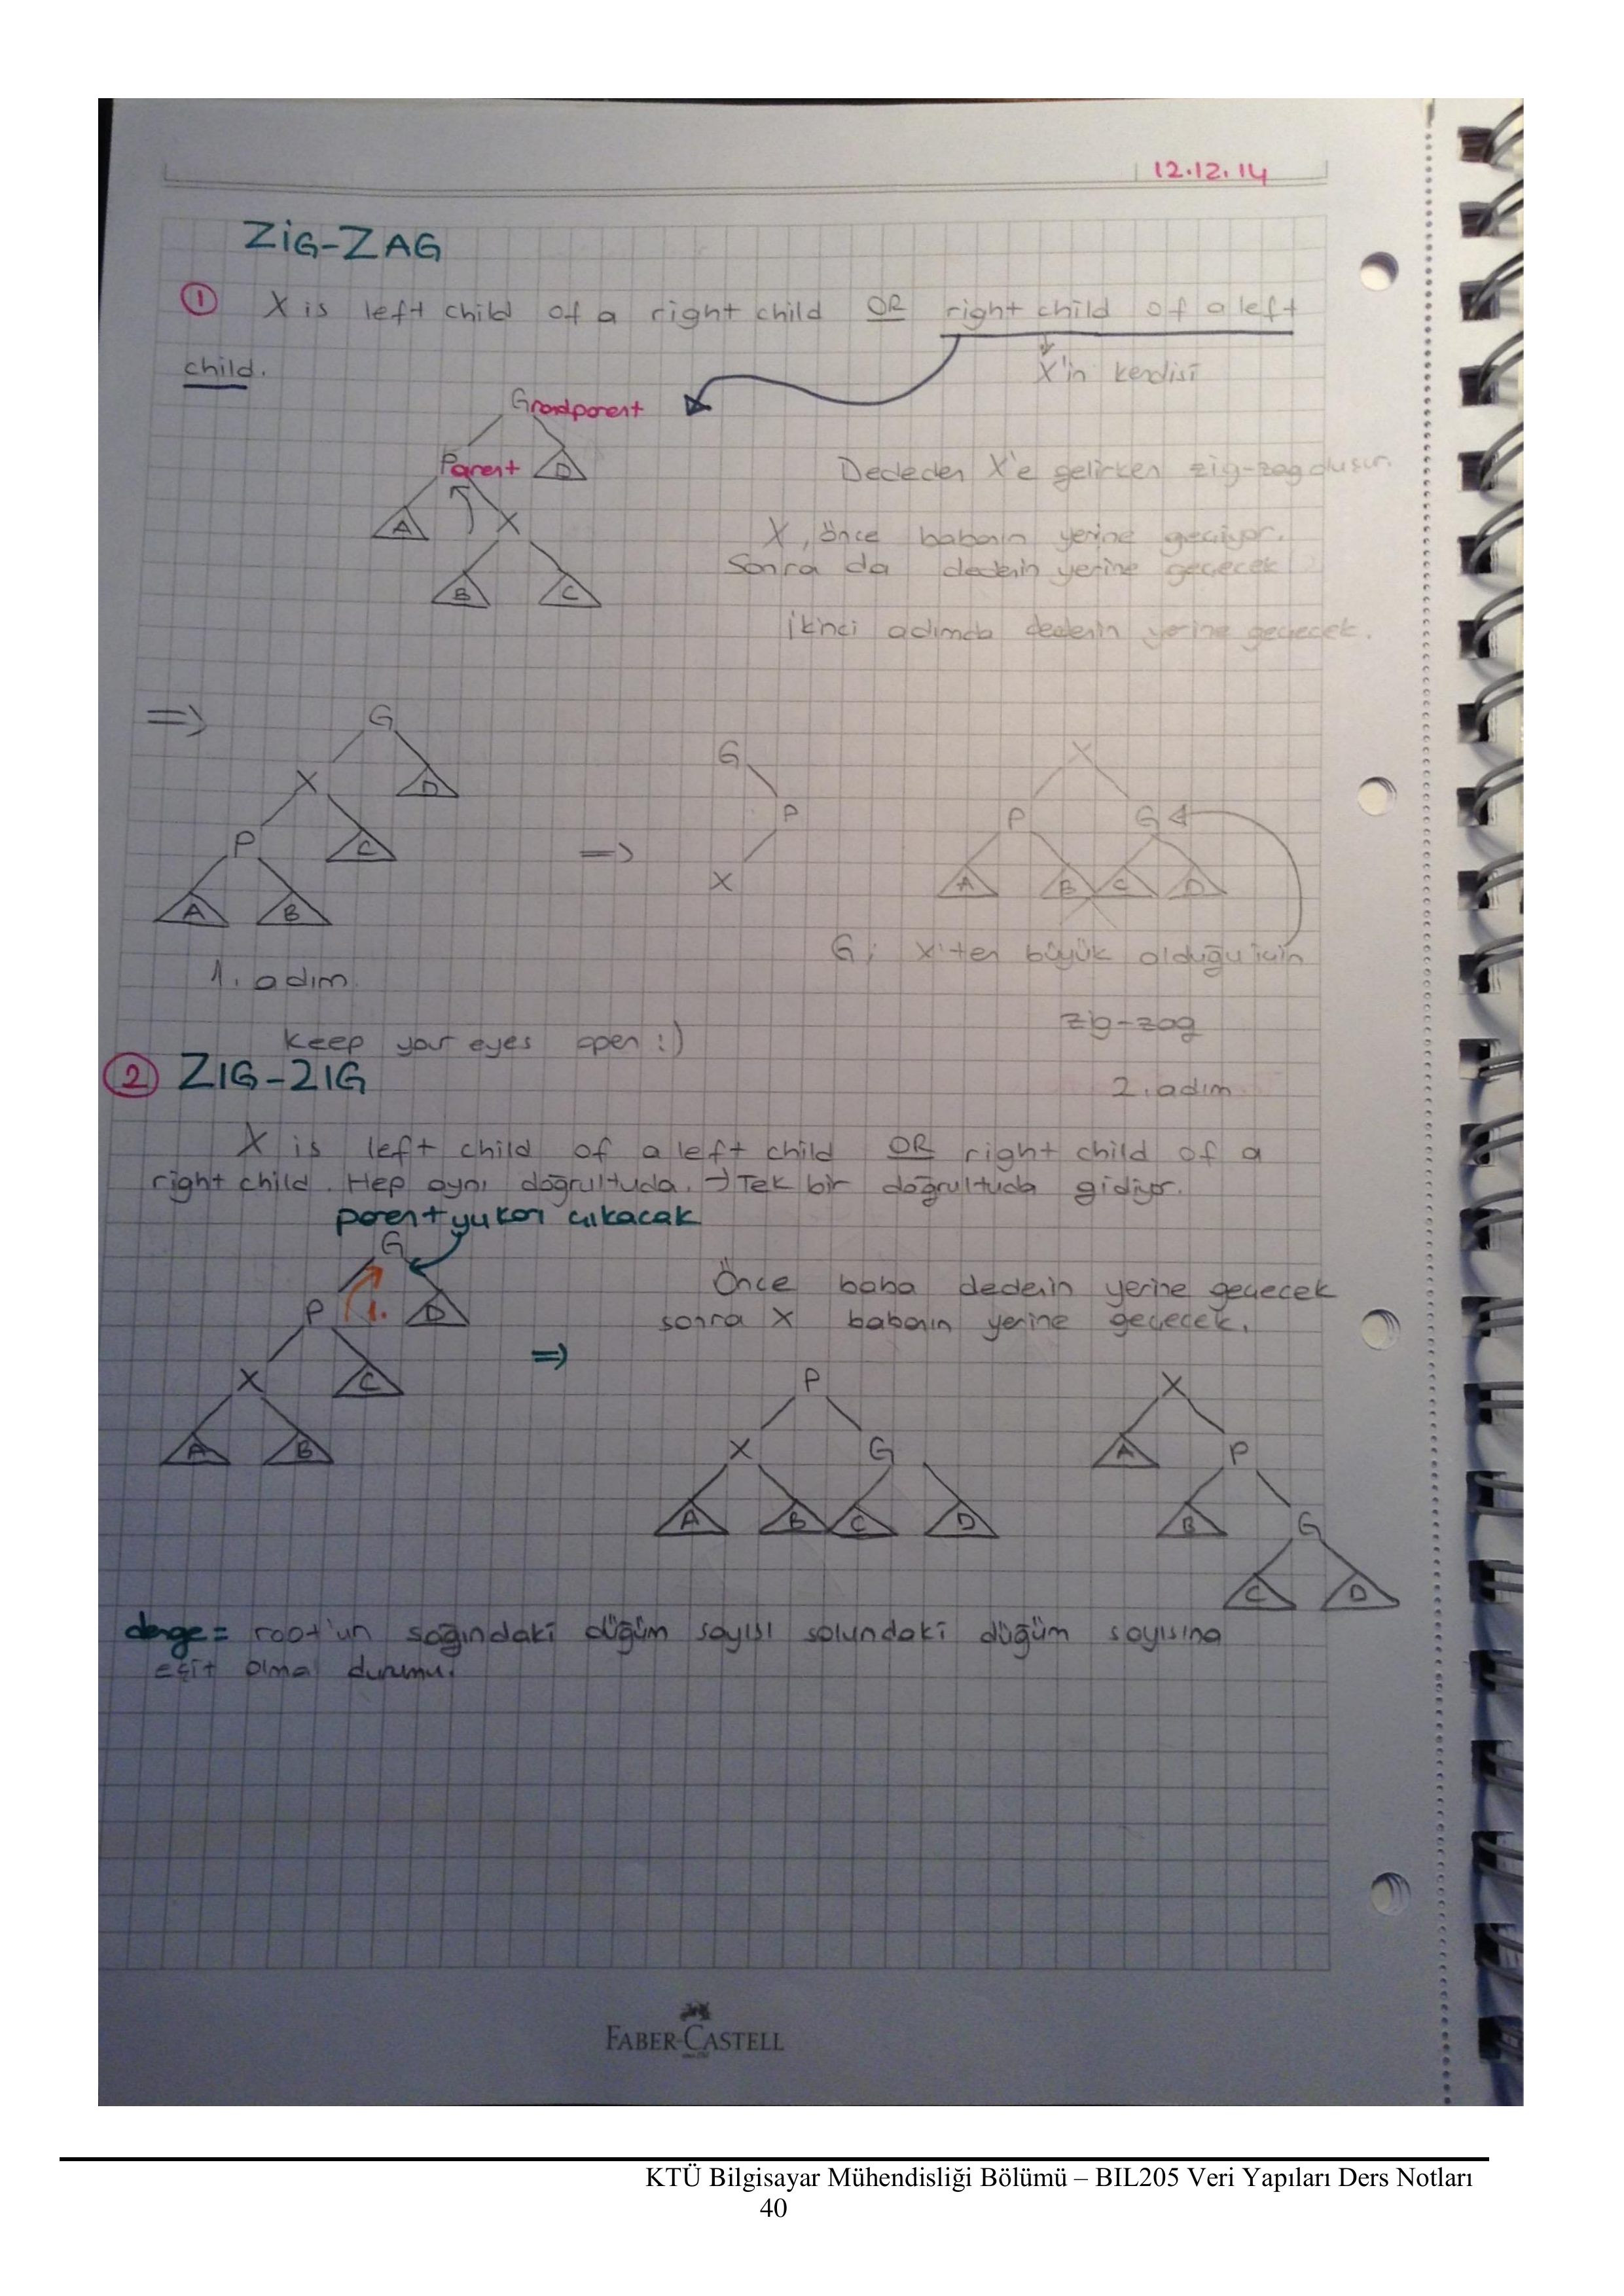 12.12.14
ZiG-ZAG
① X is left child of a right child OR right child of a left
child.
X'in kendisi
Grandparent
Parent D
Dededen X'e gelirken zig-zag oluşur.
A X
X, önce babanın yerine geçiyor.
Sonra da dedenin yerine geçecek
B C
İkinci adımda dedenin yerine geçecek.
=>
G
X D
P C
A B
1. adım
=>
G
P
X
X
P G
A B C D
G; X'ten büyük olduğu için
zig-zag
2. adım
Keep your eyes open :)
② ZIG-ZIG
X is left child of a left child OR right child of a
right child. Hep aynı doğrultuda. → Tek bir doğrultuda gidiyor.
parent yukarı çıkacak
G
P 1. D
X C
A B
Önce baba dedenin yerine geçecek
sonra X babanın yerine geçecek.
=>
P
X G
A B C D
X
A P
B G
C D
denge = root'un sağındaki düğüm sayısı solundaki düğüm sayısına
eşit olma durumu.
FABER-CASTELL
KTÜ Bilgisayar Mühendisliği Bölümü – BIL205 Veri Yapıları Ders Notları
40